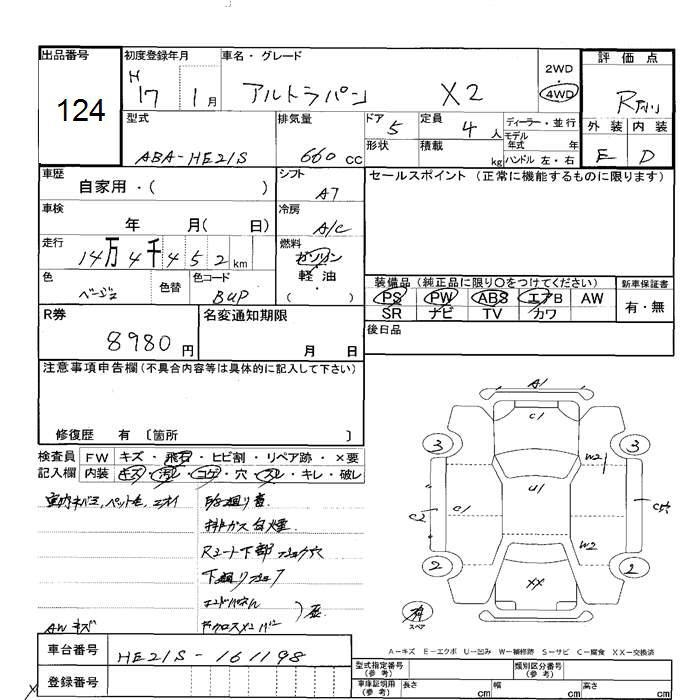 出品番号
124
初度登録年月
H
17 1月
車名・グレード
アルトラパン X2
2WD
4WD
評価点
R
外装 内装
E D
型式
ABA-HE21S
排気量
660 cc
ドア 5
定員 4 人
形状
積載 kg
ディーラー・並行
モデル
年式 年
ハンドル 左・右
車歴
自家用・( )
シフト
A7
セールスポイント (正常に機能するものに限ります)
車検
年 月( 日)
冷房
A/C
走行
14万4千452km
燃料
ガソリン
軽・油
( )
色
ベージュ
色替
色コード
BUP
装備品 (純正品に限り○をつけてください)
新車保証書
PS PW ABS エアB AW
有・無
SR ナビ TV カワ
R券
8980円
名変通知期限
月 日
後日品
注意事項申告欄(不具合内容等は具体的に記入して下さい)
修復歴 有 〔箇所 〕
検査員
記入欄
FW キズ・飛石・ヒビ割・リペア跡・×要
内装 キズ・汚レ・コゲ・穴・スレ・キレ・破レ
排ガス白煙
AWキズ
A1
C1
3
3
W2
U1
C1
W2
2
2
XX
スペア
A-キズ E-エクボ U-凹み W-補修跡 S-サビ C-腐食 XX-交換済
車台番号
HE21S-161198
登録番号
型式指定番号
(参考)
類別区分番号
(参考)
車庫証明用
(参考)
長さ cm
幅 cm
高さ cm